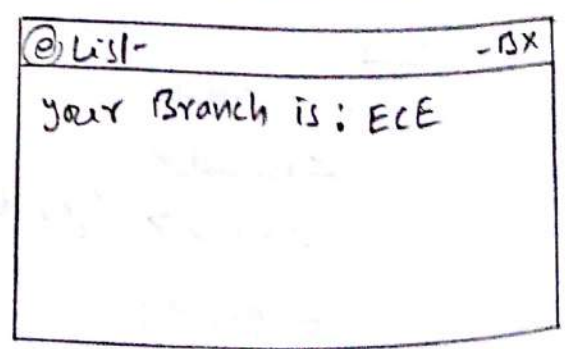 List -BX
your Branch is: ECE